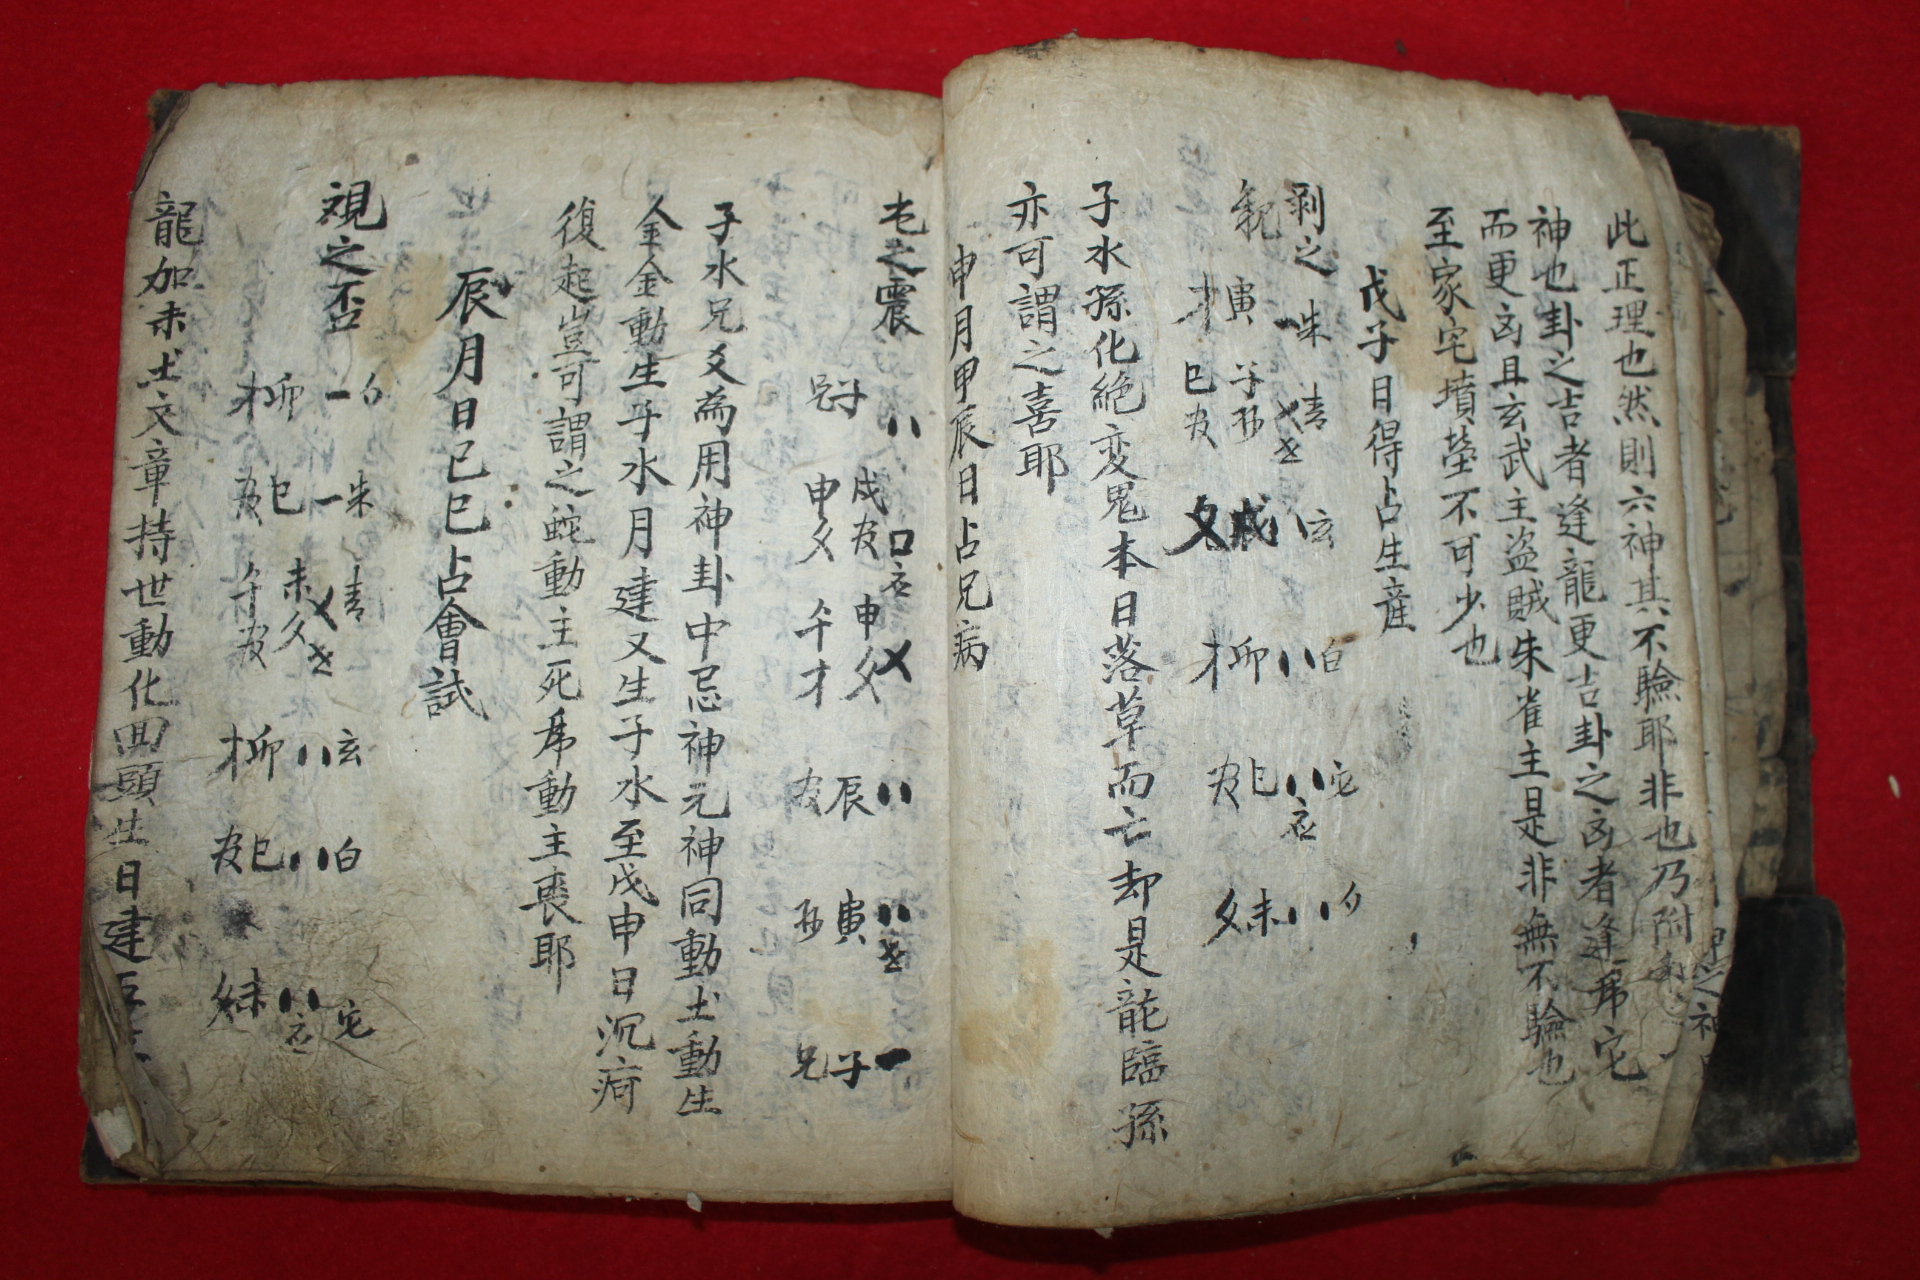 此正理也然則六神其不驗耶非也乃附
神也卦之吉者逢龍更吉卦之凶者逢虎
而更凶且玄武主盜賊朱雀主是非無不驗也
至家宅墳塋不可少也
戊子日得占生産
剥之
觀
朱 一
寅 才
青 乂 世
子 孫
巳 官
玄 八
戌 父
白 八
卯 才
八 应
巳 官
八
未 父
子水孫化絶变鬼本日落草而亡却是龍臨孫
亦可謂之喜耶
申月甲辰日占兄病
屯之震
八
子 兄
口 应
戌 官
申 父
乂
申 父
午 才
八
辰 官
八 世
寅 孫
一
子 兄
子水兄爻為用神卦中忌神元神同動土動生
金金動生子水月建又生子水至戊申日沉疴
復起豈可謂之蛇動主死虎動主喪耶
辰月日己巳占會試
观之否
一
卯 才
朱 一
巳 官
青 乂 世
未 父
午 官
玄 八
卯 才
白 八
巳 官
八 应
未 父
龍加未土文章持世動化回頭生日建